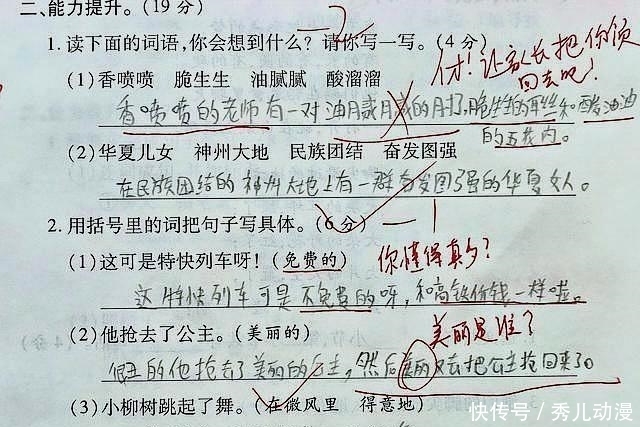 二、能力提升。(19分)
1.读下面的词语,你会想到什么?请你写一写。(4分)
(1)香喷喷 脆生生 油腻腻 酸溜溜
让家长把你领回去吧!
香喷喷的老师有一对油
的五花肉。
(2)华夏儿女 神州大地 民族团结 奋发图强
在民族团结的神州大地上有一群奋发图强的华夏女人。
2.用括号里的词把句子写具体。(6分)
(1)这可是特快列车呀!(免费的)
你懂得真多?
这特快列车可是不免费的呀,和高铁价钱一样啦。
(2)他抢去了公主。(美丽的)
美丽是谁?
很丑的他抢去了美丽的公主,然后美丽又去把公主抢回来了。
(3)小柳树跳起了舞。(在微风里 得意地)
快传号/秀儿动漫